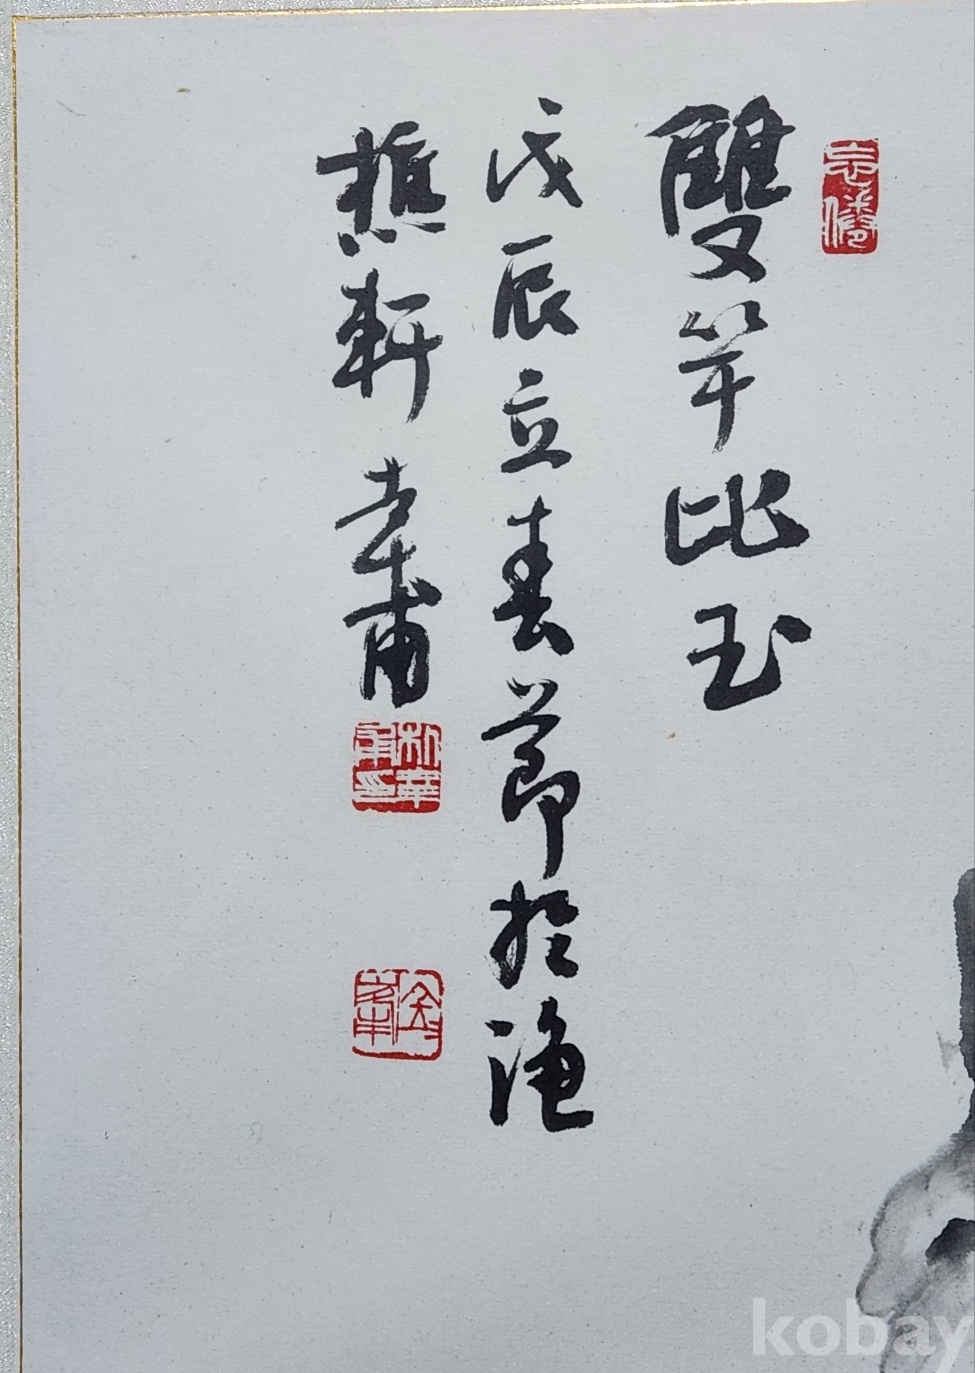 雙竿比玉
戊辰立春節於漁
樵軒 幸甫
kobay